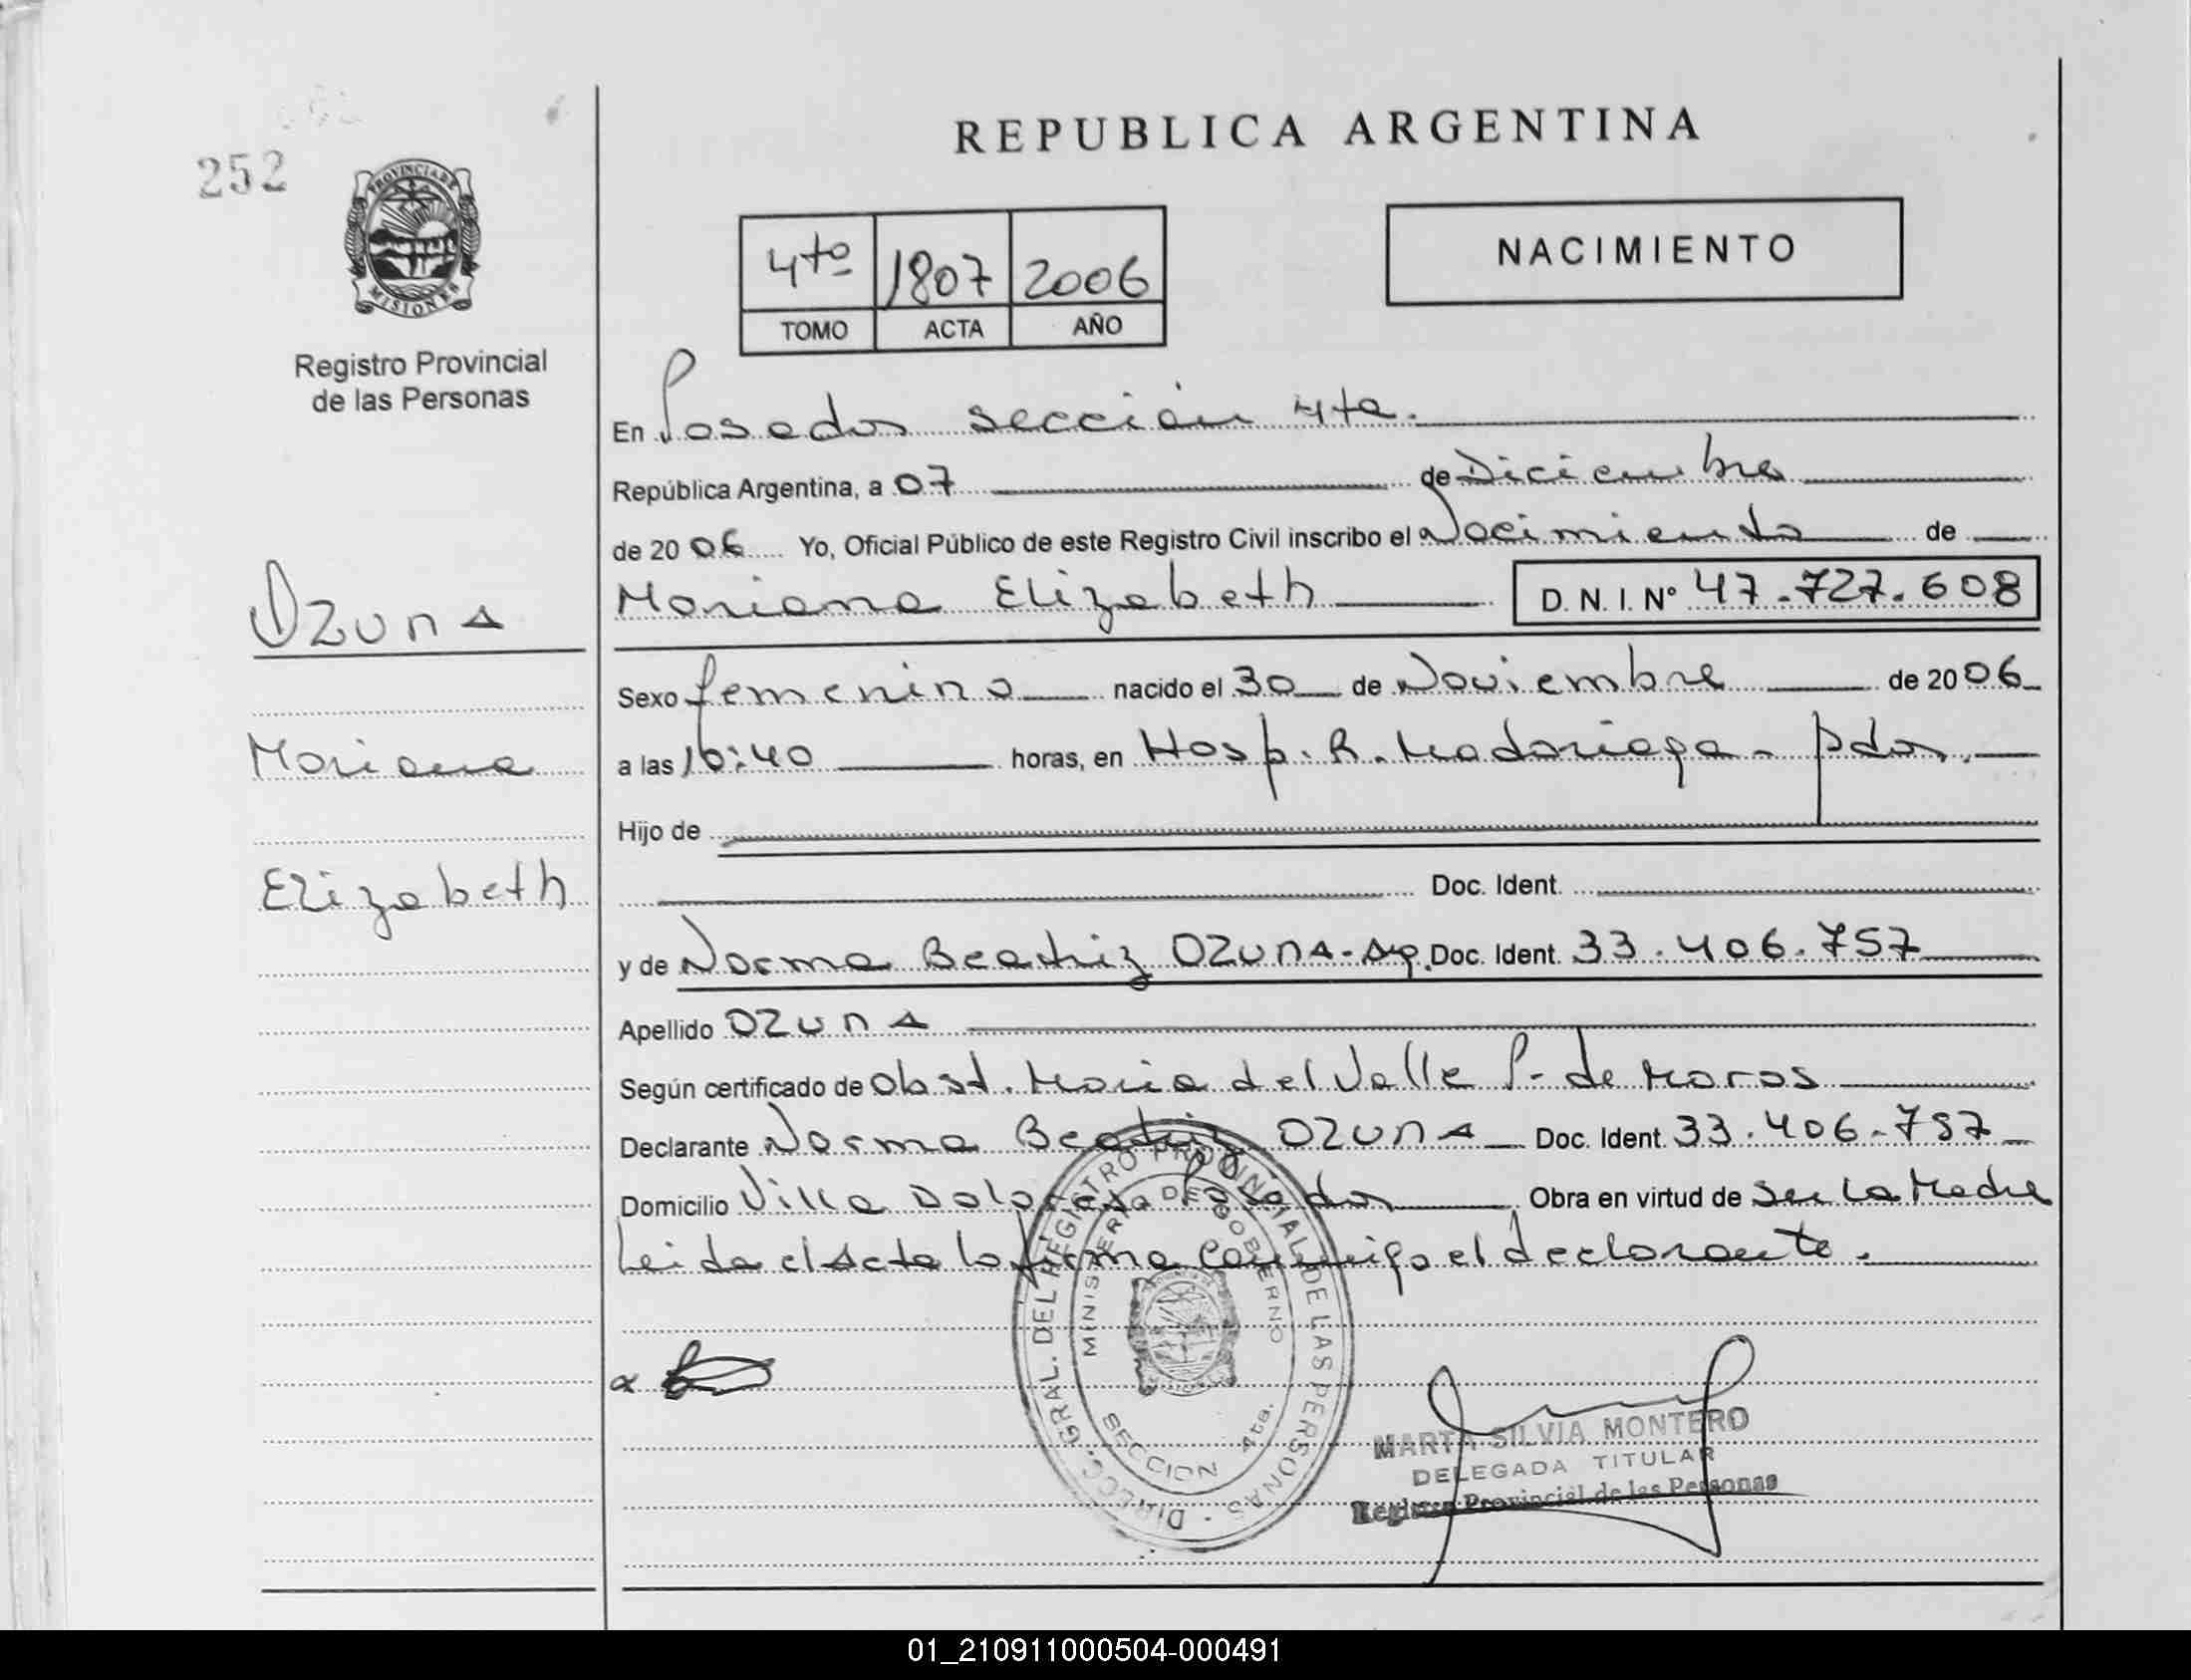 252
PROVINCIA DE
MISIONES
Registro Provincial
de las Personas
Ozuna
Mariana
Elizabeth
REPUBLICA ARGENTINA
4to 1807 2006
TOMO ACTA AÑO
NACIMIENTO
En Posadas sección 4ta.
República Argentina, a 07 de Diciembre
de 2006 Yo, Oficial Público de este Registro Civil inscribo el Nacimiento de
Mariana Elizabeth D.N.I. Nº 47.727.608
Sexo femenino nacido el 30 de Noviembre de 2006
a las 16:40 horas, en Hosp. R. Madariaga - Pdas.
Hijo de
Doc. Ident.
y de Norma Beatriz OZUNA - Arg. Doc. Ident. 33.406.757
Apellido OZUNA
Según certificado de Obst. Maria del Valle P. de Maros
Declarante Norma Beatriz OZUNA Doc. Ident. 33.406.757
Domicilio Villa Dolores Posadas Obra en virtud de Ser La Madre
Leida el Acta la firma conmigo el declarante.
DIRECC. GRAL. DEL REGISTRO PROVINCIAL DE LAS PERSONAS
MINISTERIO DE GOBIERNO
SECCION 4ta.
MARTA SILVIA MONTERO
DELEGADA TITULAR
Registro Provincial de las Personas
01_210911000504-000491